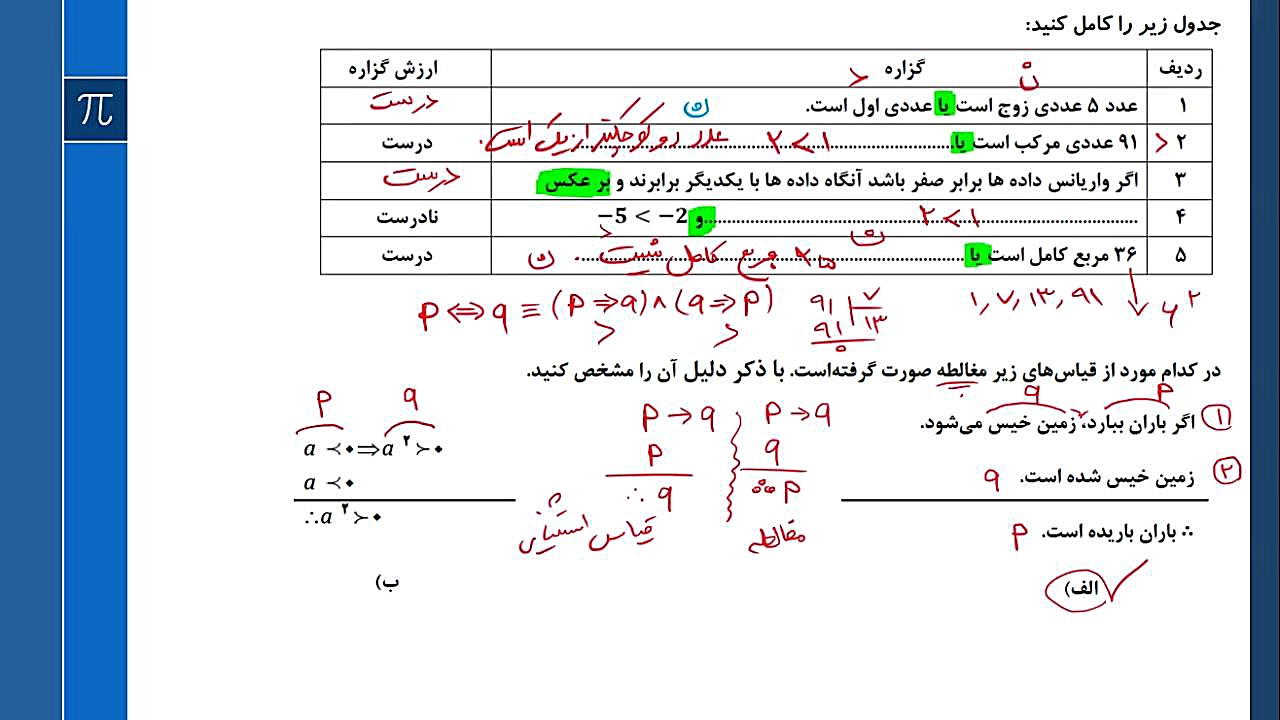 جدول زیر را کامل کنید:
ردیف گزاره ارزش گزاره
ن د
۱ عدد ۵ عددی زوج است یا عددی اول است. درست
ن
۲ ۹۱ عددی مرکب است یا ۲ < ۱ عدد دو کوچکتر از یک است. درست
د
۳ اگر واریانس داده ها برابر صفر باشد آنگاه داده ها با یکدیگر برابرند و بر عکس درست
۴ ۲ < ۱ و −5 < −2 نادرست
ن د
۵ ۳۶ مربع کامل است یا مربع کامل نیست. ن درست
p ⇔ q ≡ (p ⇒ q) ∧ (q ⇒ p)
د د
۹۱ ۷
۹۱ ۱۳
۰
۱, ۷, ۱۳, ۹۱
۶۲
در کدام مورد از قیاس‌های زیر مغالطه صورت گرفته‌است. با ذکر دلیل آن را مشخص کنید.
p q
۱ اگر باران ببارد، زمین خیس می‌شود.
۲ زمین خیس شده است. q
∴ باران باریده است. p
الف)
p → q
q
∴ p
مغالطه
p → q
p
∴ q
قیاس استثنایی
p q
a ≺ ۰ ⇒ a ۲ ≻ ۰
a ≺ ۰
∴ a ۲ ≻ ۰
ب)
π